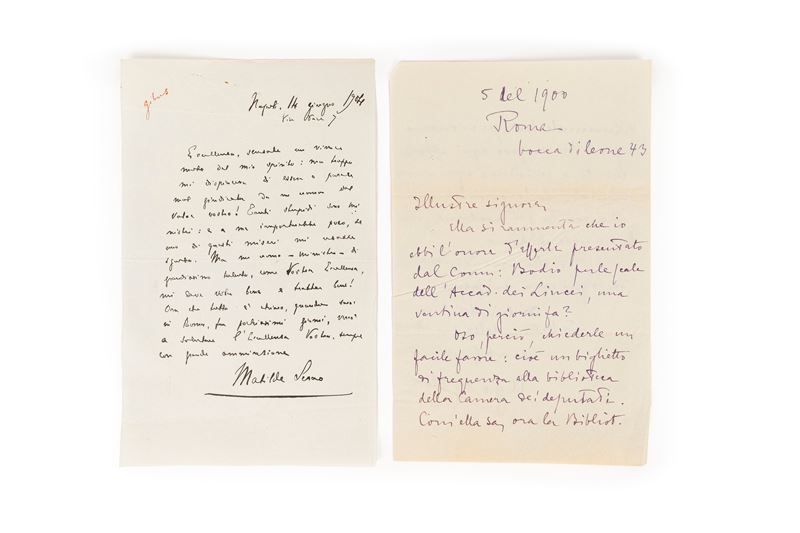 Napoli, 14 giugno 1904
Eccellenza, scusate un vivace
moto del mio spirito: ma troppo
mi dispiaceva di essere a
mal giudicata da un uomo del
vostro! Tanti stupidi sono
ministri: e a me importerebbe poco, se
uno di questi miseri mi
Ma un uomo – ministro – di
grandissimo talento, come Vostra Eccellenza,
mi deve voler bene e trattar bene!
Ora che tutto è chiaro, quando sarò
in Roma, fra pochissimi giorni, verrò
a salutare l'Eccellenza Vostra, sempre
con grande ammirazione
Matilde Serao
5 del 1900
Roma
bocca di leone 43
Illustre signora,
Ella si rammenta che io
ebbi l'onore d'esserle presentato
dal Comm: Bodio per le scale
dell'Accad. dei Lincei, una
ventina di giorni fa?
Oso, perciò, chiederle un
facile favore: cioè un biglietto
di frequenza alla biblioteca
della Camera dei deputati.
Com'ella sa, ora la Bibliot.